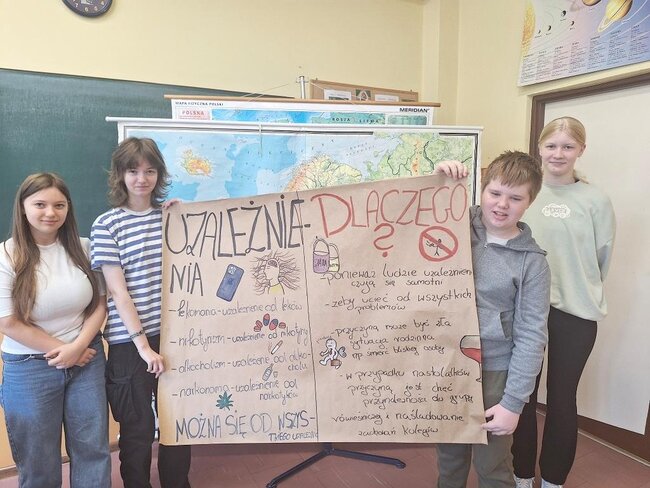 MAPA FIZYCZNA POLSKI
POLSKA
MERIDIAN
UZALEŻNIE-
NIA
- lekomania - uzależnienie od leków
- nikotynizm - uzależnienie od nikotyny
- alkoholizm - uzależnienie od alko-
holu
- narkomania - uzależnienie od
narkotyków
MOŻNA SIĘ OD WSZYS-
TKIEGO UZALEŻNIĆ
DLACZEGO
?
- ponieważ ludzie uzależnieni
czują się samotni
- żeby uciec od wszystkich
problemów
- przyczyną może być zła
sytuacja rodzinna
np. śmierć bliskiej osoby
- w przypadku nastolatków
przyczyną jest chęć
przynależności do grupy
rówieśniczej i naśladowanie
zachowań kolegów